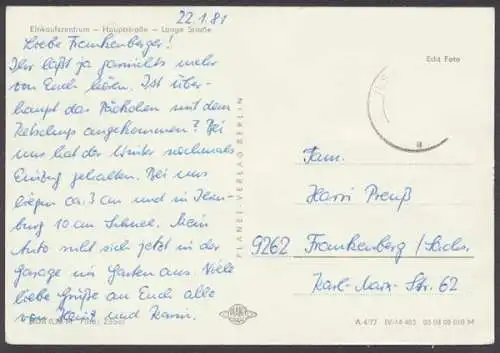 22.1.81
Einkaufszentrum – Hauptstraße – Lange Straße
Echt Foto
Liebe Frankenberger!
Ihr laßt ja garnichts mehr
von Euch hören. Ist über-
haupt das Päckchen mit dem
angekommen? Bei
uns hat der Winter nochmals
Einzug gehalten. Bei uns
liegen ca. 3 cm und in
burg 10 cm Schnee. Mein
Auto ruht sich jetzt in der
Garage im Garten aus. Viele
liebe Grüße an Euch alle
von Heinz und Karin.
PLANET-VERLAG BERLIN
PLANET
Fam.
Harri Preuß
9262 Frankenberg/Sachs.
Karl-Marx-Str. 62
A 4/77 IV-14-483